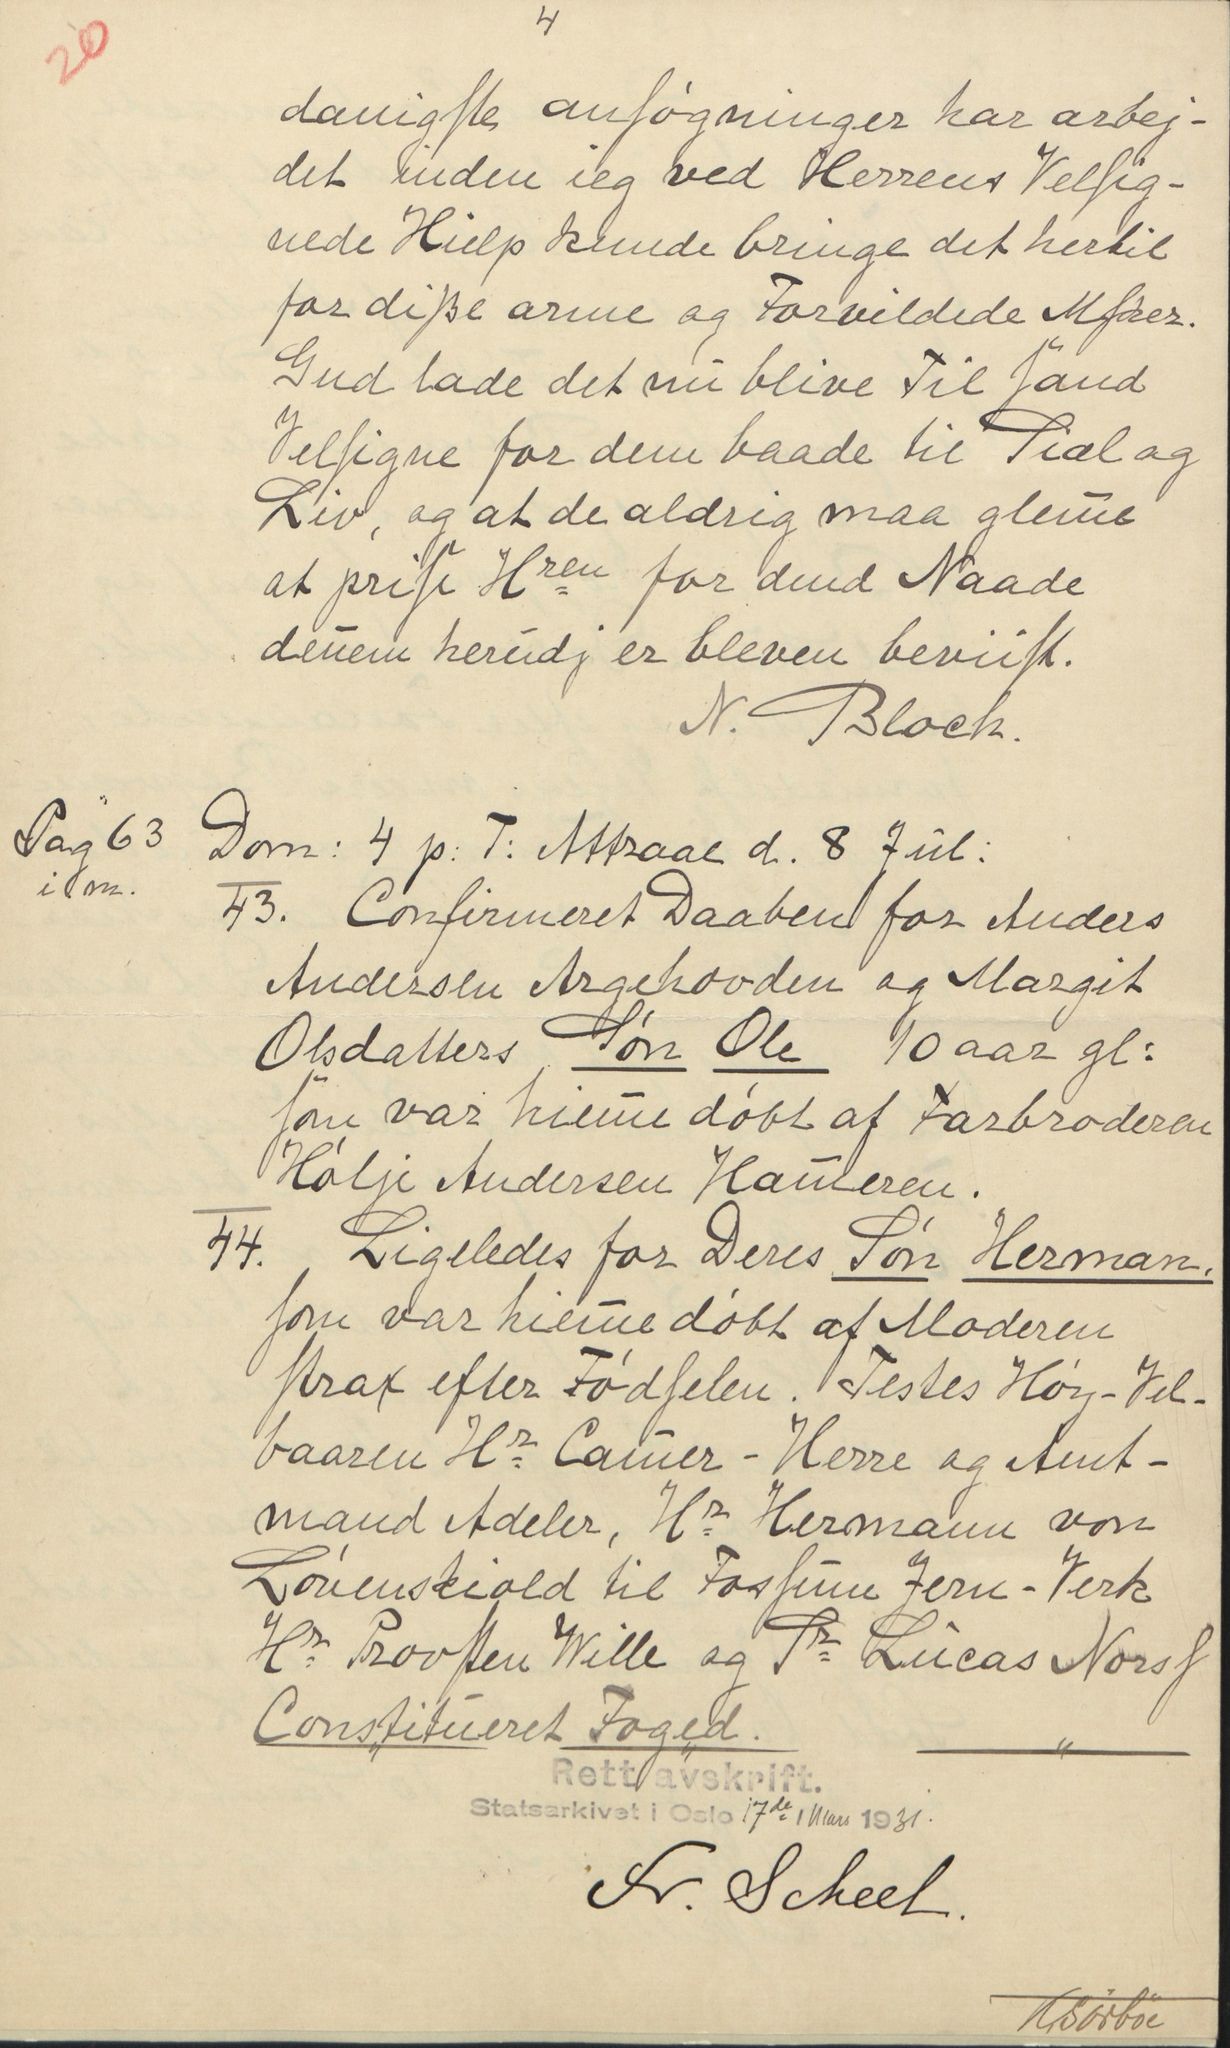 4
20
danigste ansøgninger har arbej-
det inden ieg ved Herrens Velsig-
nede Hielp kunde bringe det hertil
for diße arme og Forvildede Msker.
Gud lade det nū blive Til sand
Velsigne for dem baade til Siæl og
Liv, og at de aldrig maa glem̄e
at prise Hren for dend Naade
den̄em herūdj er bleven beviist.
N. Block.
Pag 63 Dom: 4 p: T: Attraae d. 8 Jūl:
i m.
43. Confirmeret Daaben for Anders
Andersen Argehovden og Margit
Olsdatters Søn Ole 10 aar gl:
som var hiem̄e døbt af Farbroderen
Hølje Andersen Ham̄eren.
44. Ligeledes for Deres Søn Herman.
som var hiem̄e døbt af Moderen
strax efter Fødselen. Testes Høy-Vel-
baaren Hr Cam̄er-Herre og Amt-
mand Adeler, Hr Hermann von
Løvenskiold til Fossūm Jern-Verk
Hr Provsten Wille og Sr Lūcas Nors
Constitūeret Foged.
Rett avskrift.
Statsarkivet i Oslo 17de Mars 1931.
Fr. Scheel.